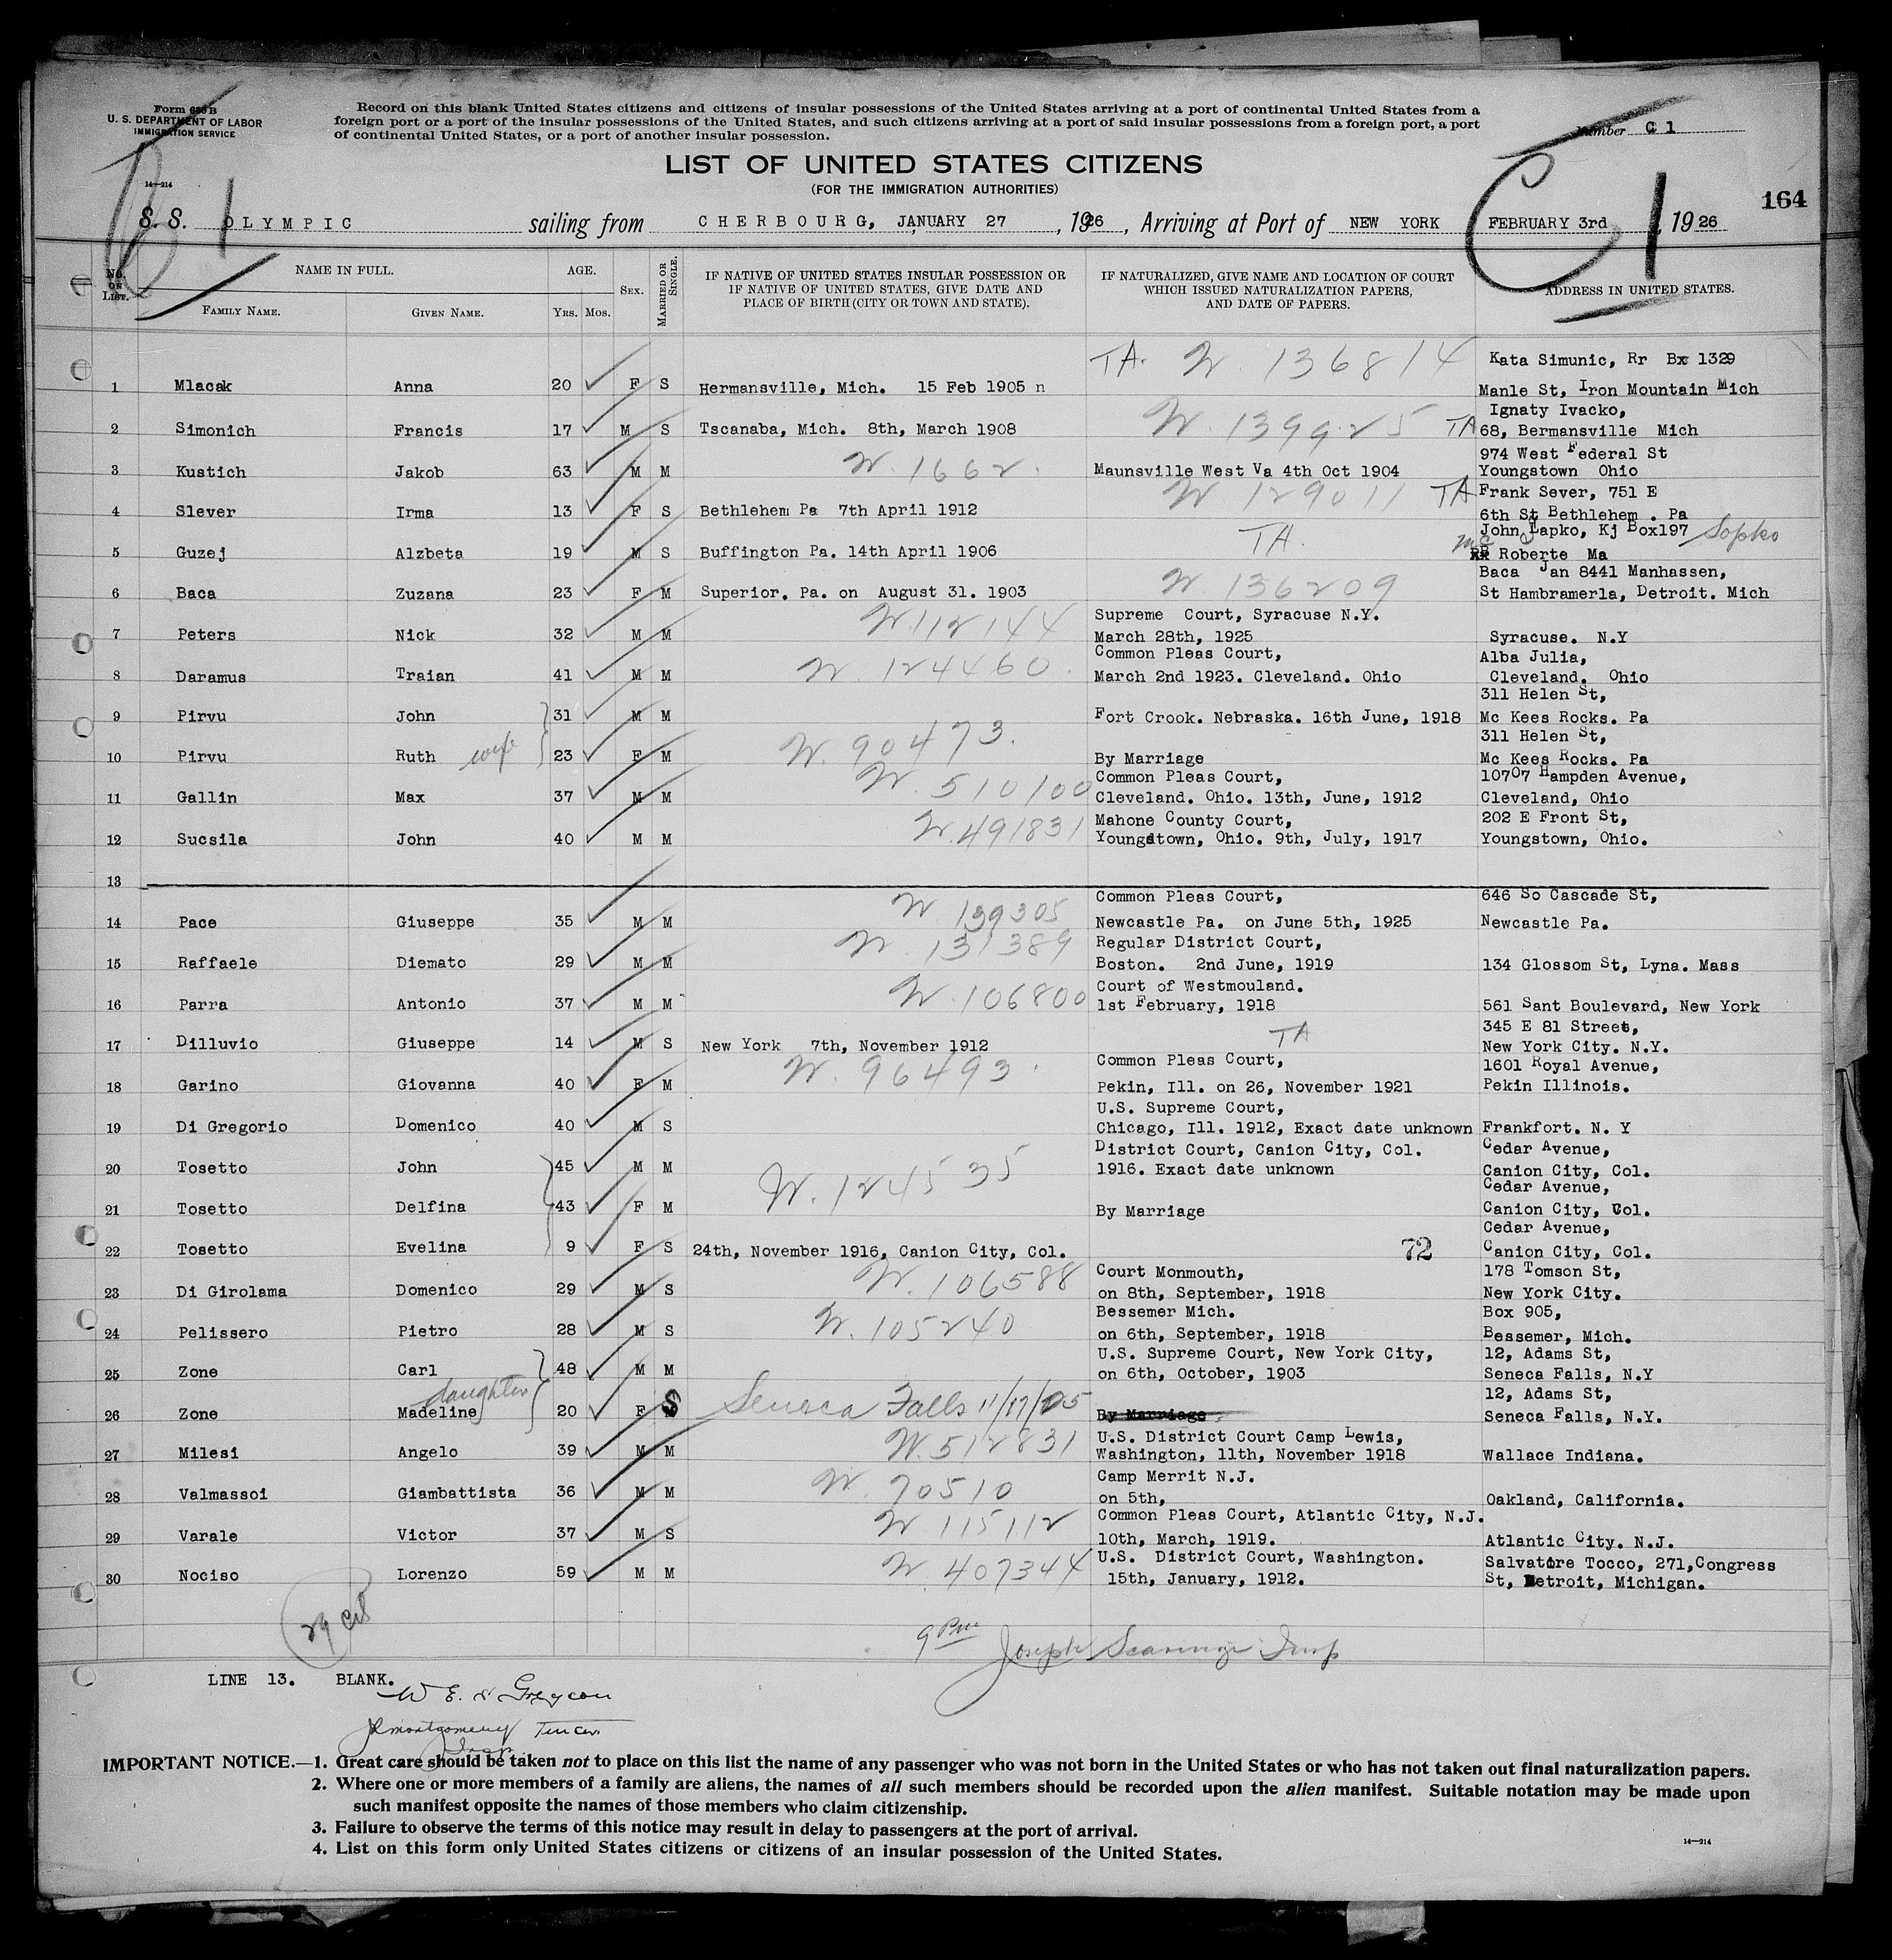 Form 630 B
U. S. DEPARTMENT OF LABOR
IMMIGRATION SERVICE
14—214
Record on this blank United States citizens and citizens of insular possessions of the United States arriving at a port of continental United States from a
foreign port or a port of the insular possessions of the United States, and such citizens arriving at a port of said insular possessions from a foreign port, a port
of continental United States, or a port of another insular possession.
Number C 1
LIST OF UNITED STATES CITIZENS
(FOR THE IMMIGRATION AUTHORITIES)
C1
164
S. S. OLYMPIC sailing from CHERBOURG, JANUARY 27, 1926, Arriving at Port of NEW YORK FEBRUARY 3rd, 1926
No. ON LIST. NAME IN FULL. AGE. SEX. MARRIED OR SINGLE. IF NATIVE OF UNITED STATES INSULAR POSSESSION OR IF NATIVE OF UNITED STATES, GIVE DATE AND PLACE OF BIRTH (CITY OR TOWN AND STATE). IF NATURALIZED, GIVE NAME AND LOCATION OF COURT WHICH ISSUED NATURALIZATION PAPERS, AND DATE OF PAPERS. ADDRESS IN UNITED STATES.
FAMILY NAME. GIVEN NAME. YRS. MOS.
TA. W. 136814 Kata Simunic, Rr Bx 1329
1 Mlacak Anna 20 F S Hermansville, Mich. 15 Feb 1905 n Manle St, Iron Mountain Mich
W. 139925 TA Ignaty Ivacko,
2 Simonich Francis 17 M S Tscanaba, Mich. 8th, March 1908 68, Bermansville Mich
W. 1662. 974 West Federal St
3 Kustich Jakob 63 M M Maunsville West Va 4th Oct 1904 Youngstown Ohio
W 129011 TA Frank Sever, 751 E
4 Slever Irma 13 F S Bethlehem Pa 7th April 1912 6th St Bethlehem . Pa
TA. John Lapko, Kj Box197 Sopko
5 Guzej Alzbeta 19 M S Buffington Pa. 14th April 1906 Roberte Ma
W 136209 Baca Jan 8441 Manhassen,
6 Baca Zuzana 23 F M Superior. Pa. on August 31. 1903 St Hambramerla, Detroit. Mich
W.112144 Supreme Court, Syracuse N.Y.
7 Peters Nick 32 M M March 28th, 1925 Syracuse. N.Y
W. 124460. Common Pleas Court, Alba Julia,
8 Daramus Traian 41 M M March 2nd 1923. Cleveland. Ohio Cleveland. Ohio
311 Helen St,
9 Pirvu John 31 M M Fort Crook. Nebraska. 16th June, 1918 Mc Kees Rocks. Pa
W. 90473. 311 Helen St,
10 Pirvu Ruth wife 23 F M By Marriage Mc Kees Rocks. Pa
W. 510100 Common Pleas Court, 10707 Hampden Avenue,
11 Gallin Max 37 M M Cleveland. Ohio. 13th, June, 1912 Cleveland, Ohio
W.491831 Mahone County Court, 202 E Front St,
12 Sucsila John 40 M M Youngstown, Ohio. 9th, July, 1917 Youngstown, Ohio.
13
W. 139305 Common Pleas Court, 646 So Cascade St,
14 Pace Giuseppe 35 M M Newcastle Pa. on June 5th, 1925 Newcastle Pa.
W. 131389 Regular District Court,
15 Raffaele Diemato 29 M M Boston. 2nd June, 1919 134 Glossom St, Lyna. Mass
W. 106800 Court of Westmouland.
16 Parra Antonio 37 M M 1st February, 1918 561 Sant Boulevard, New York
TA 345 E 81 Street,
17 Dilluvio Giuseppe 14 M S New York 7th, November 1912 New York City. N.Y.
W. 96493. Common Pleas Court, 1601 Royal Avenue,
18 Garino Giovanna 40 F M Pekin, Ill. on 26, November 1921 Pekin Illinois.
U.S. Supreme Court,
19 Di Gregorio Domenico 40 M S Chicago, Ill. 1912, Exact date unknown Frankfort. N. Y
District Court, Canion City, Col. Cedar Avenue,
20 Tosetto John 45 M M 1916. Exact date unknown Canion City, Col.
W. 124535 Cedar Avenue,
21 Tosetto Delfina 43 F M By Marriage Canion City, Col.
Cedar Avenue,
22 Tosetto Evelina 9 F S 24th, November 1916, Canion City, Col. 72 Canion City, Col.
W. 106588 Court Monmouth, 178 Tomson St,
23 Di Girolama Domenico 29 M S on 8th, September, 1918 New York City.
W. 105240 Bessemer Mich. Box 905,
24 Pelissero Pietro 28 M S on 6th, September, 1918 Bessemer, Mich.
U.S. Supreme Court, New York City, 12, Adams St,
25 Zone Carl 48 M M on 6th, October, 1903 Seneca Falls, N.Y
daughter 12, Adams St,
26 Zone Madeline 20 F S Seneca Falls 11/17/05 By Marriage Seneca Falls, N.Y.
W. 512831 U.S. District Court Camp Lewis,
27 Milesi Angelo 39 M M Washington, 11th, November 1918 Wallace Indiana.
W. 70510 Camp Merrit N.J.
28 Valmassoi Giambattista 36 M M on 5th, Oakland, California.
W 115112 Common Pleas Court, Atlantic City, N.J.
29 Varale Victor 37 M S 10th, March, 1919. Atlantic City. N.J.
W. 407344 U.S. District Court, Washington. Salvatore Tocco, 271,Congress
30 Nociso Lorenzo 59 M M 15th, January, 1912. St, Detroit, Michigan.
29
9 Pm Joseph Insp
LINE 13. BLANK.
JRMontgomery
IMPORTANT NOTICE.—1. Great care should be taken not to place on this list the name of any passenger who was not born in the United States or who has not taken out final naturalization papers.
2. Where one or more members of a family are aliens, the names of all such members should be recorded upon the alien manifest. Suitable notation may be made upon
such manifest opposite the names of those members who claim citizenship.
3. Failure to observe the terms of this notice may result in delay to passengers at the port of arrival.
4. List on this form only United States citizens or citizens of an insular possession of the United States.
14—214